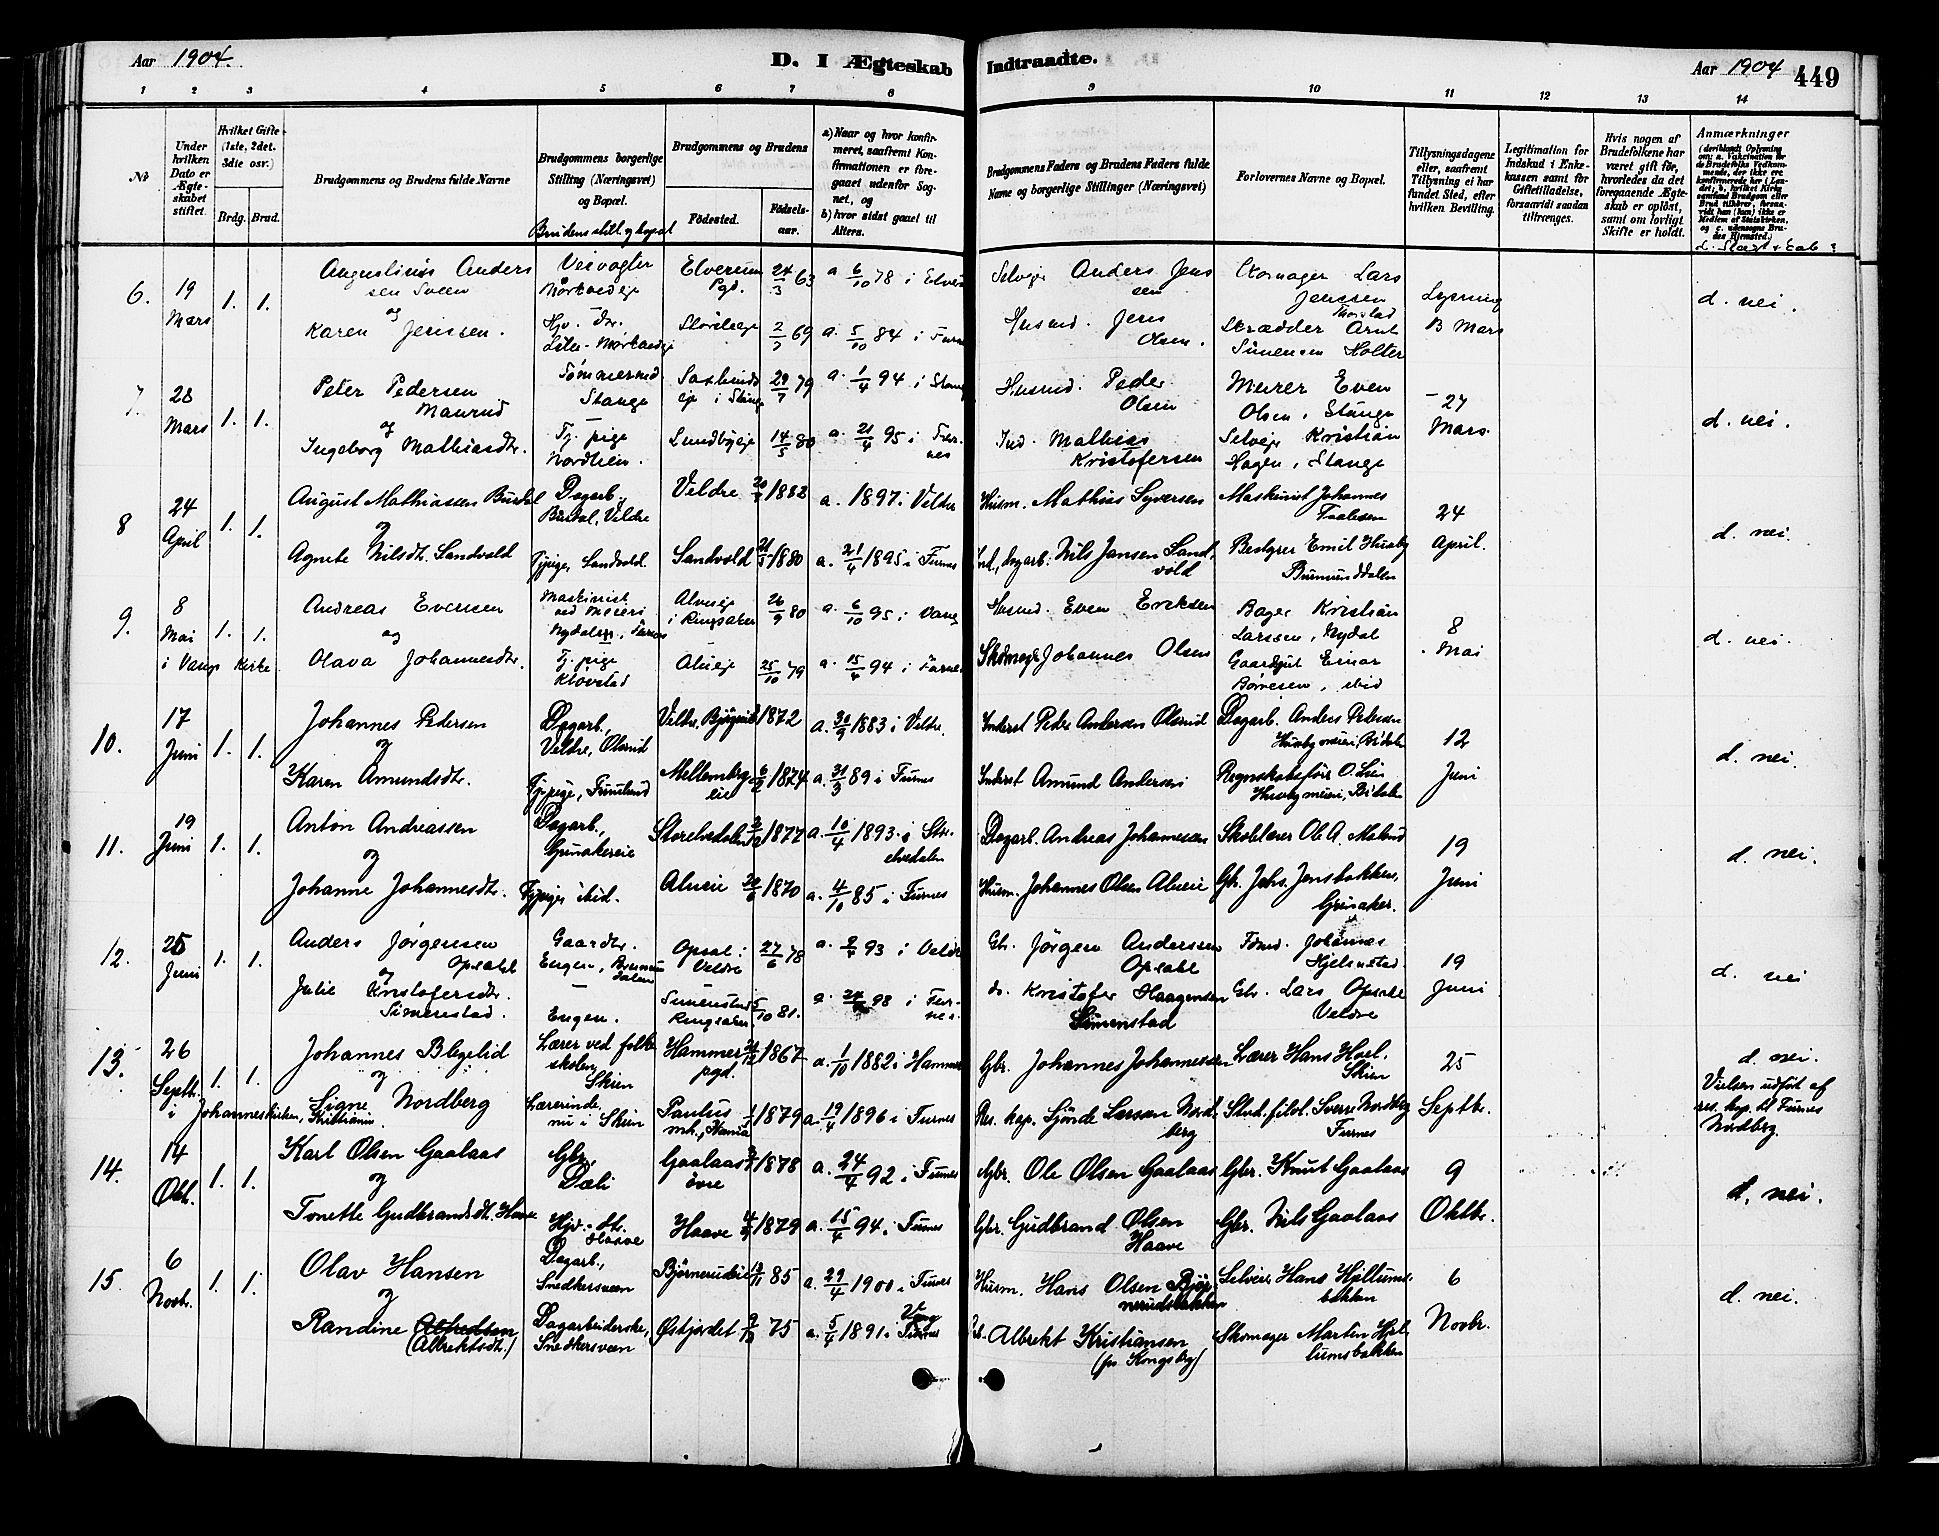 Aar 1904. D. I Ægteskab Indtraadte. Aar 1904 449
1 2 3 4 5 6 7 8 9 10 11 12 13 14
No
Under hvilken Dato er Ægteskabet stiftet.
Hvilket Gifte (1ste, 2det, 3die osv.)
Brdg. Brud.
Brudgommens og Brudens fulde Navne
Brudgommens borgerlige Stilling (Næringsvei) og Bopæl.
Brudens still. og bopæl
Brudgommens og Brudens
Fødested. Fødselsaar.
a) Naar og hvor konfirmeret, saafremt Konfirmationen er foregaaet udenfor Sognet, og
b) hvor sidst gaaet til Alters.
Brudgommens Faders og Brudens Faders fulde Navne og borgerlige Stillinger (Næringsvei)
Forlovernes Navne og Bopæl.
Tillysningsdagene eller, saafremt Tillysning ei har fundet Sted, efter hvilken Bevilling.
Legitimation for Indskud i Enkekassen samt for Giftetilladelse, forsaavidt saadan tiltrænges.
Hvis nogen af Brudefolkene har været gift før, hvorledes da det foregaaende Ægteskab er opløst, samt om lovligt Skifte er holdt.
Anmærkninger
6. 19 Mars 1. 1.
Augustinus Andersen Sveen
og
Karen Jenssen.
Veivogter
Hjv. dtr.
Elverum Pgd. 24/3 63 a 6/10 78 i Elverum
2/7 69 a. 5/10 84 i Furnes
Selveier Anders Jenssen
Husmd. Jens Olsen.
Skomager Lars Jenssen
Skrædder Arnt Simensen Holter
Lysning 13 Mars
d. nei.
7. 28 Mars 1. 1.
Peter Pedersen Maurud
og
Ingeborg Mathiasdtr.
Tømmermd Stange
Tj. pige Nordlien.
i Stange 29/7 79 a. 1/4 94 i Stange
Lundbyeje 14/5 80 a. 21/4 95 i Furnes
Husmd. Peder Olsen
Ind. Mathias Kristofersen
Murer Even Olsen, Stange
Selvejer Kristian Hagen, Stange
27 Mars.
d. nei.
8 24 April 1. 1.
August Mathiassen Burdal
og
Agnete Nilsdt. Sandvold
Dagarb. Burdal, Veldre
Tjpige, Sandvold.
Veldre 1882 a. 1897 i Veldre
Sandvold 1880 a. 21/4 1895 i Furnes
Husm. Mathias Syversen
Ind., dagarb. Nils Jansen Sandvold
Maskinist Johannes Paalesen
Bestyrer Emil Huseby Brumunddalen
24 April.
d. nei.
9. 8 Mai i Vangs Kirke 1. 1.
Andreas Evensen
og
Olava Johannesdtr.
Maskinist ved Meieri Nydalen, Furnes
Tj. pige Klovstad
Alvueje i Ringsaker 26/9 80 a. 6/10 95 i Vang
Alueje 25/10 79 a. 15/4 94 i Furnes
Husmd. Even Eriksen
Skomager Johannes Olsen
Bager Kristian Larssen, Nydal
Gaardgut Einar Børresen, ibid
8 Mai
d. nei.
10. 17 Juni 1. 1.
Johannes Pedersen
og
Karen Amundsdtr.
Dagarb., Veldre, Olsrud
Tjpige, Furulund
Veldre, 1872 a. 30/9 1883 i Veldre.
Mellemberg eie 1874 a. 31/3 89 i Furnes
Inderst Peder Andersen Olsrud
Inderst Amund Andersen
Dagarb. Anders Petersen Husby meieri, Bdalen
Regnskabsfører O. Lien Husby meieri, Bdalen
12 Juni
d. nei.
11. 19 Juni 1. 1.
Anton Andreassen
og
Johanne Johannesdtr.
Dagarb., Grinakereie
Tjpige, ibid.
Storelvedalen 1877 a. 10/4 1893 i Storelvedalen
Alueie 1870 a. 4/10 85 i Furnes
Dagarb. Andreas Johannesen
Husm. Johannes Olsen Alueie
Skolelærer Ole A.
Gbr. Johs. Jensbakken, Grinaker.
19 Juni
d. nei.
12. 25 Juni 1. 1.
Anders Jørgensen Opsahl
og
Julie Kristofersdtr. Simenstad.
Gaardbr. Engen, Brumunddalen
Engen.
Opsal i Veldre 27/6 78 a. 2/4 93 i Veldre
Simenstad Ringsaker 5/10 81. a. 24/4 98 i Furnes.
Gbr. Jørgen Anderssen Opsahl
do. Kristofer Haagensen Simenstad
Fdmd. Johannes Hjelmstad.
Gbr. Lars Opsahl Veldre
19 Juni
d. nei
13. 26 Septb. i Johannes Kirken, Kristiania. 1. 1.
Johannes Blegelid
og
Signe Nordberg
Lærer ved folkeskolen, Skien
Lærerinde nu i Skien
Hammer pgd. 1867 a. 1/10 1882 i Hammer
Paulus mh., Krania 1/1 1879 a. 19/4 1896 i Furnes
Gbr. Johannes Johannessen
Res. kap. Sjönde Larssen Nordberg
Lærer Hans Hoel. Skien
Stud. filol. Sverre Nordberg Furnes
25 Septbr.
d. nei.
Vielsen udført af res. kap. til Furnes Nordberg.
14. 14 Okt. 1. 1.
Karl Olsen Gaalaas
og
Tonette Gudbrandsdt. Haave
Gbr. Dæli
Hjv. dtr. Haave
Gaalaas øvre 1878 a. 24/4 92 i Furnes
Haave 1879 a. 15/4 94 i Furnes
Gbr. Ole Olsen Gaalaas
Gbr. Gudbrand Olsen Haave
Gbr. Knut Gaalaas
Gbr. Nils Gaalaas
9 Oktbr.
d. nei.
15. 6 Novbr. 1. 1.
Olav Hansen
og
Randine Alfredsen (Albrektsdt.)
Dagarb., Snedkersveen
Dagarbeiderske, Snedkersveen
Bjørnerudeie 85 a. 29/4 1900 i Furnes
Østjordet 75 a. 5/4 1891 i Furnes Vang
Husm. Hans Olsen Bjørnerudsbakken
Albrekt Kristiansen (fr. Kongsbg)
Selveier Hans Hjellumsbakken
Skomager Martin Hjellumsbakken
6 Novbr.
d. nei.